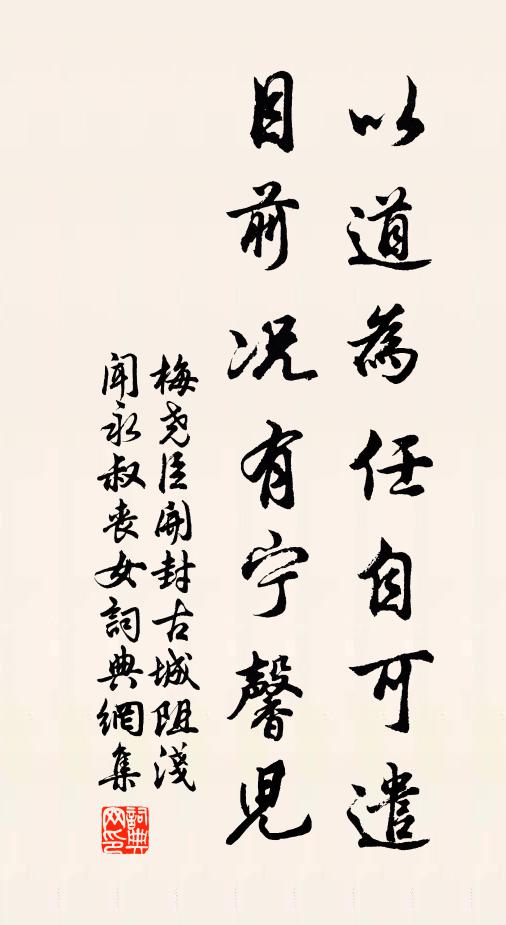 以道為任自可遣
目前况有宁馨児
梅尧臣開封古城阻淺
聞永叔丧女詞典網集
詞典网印